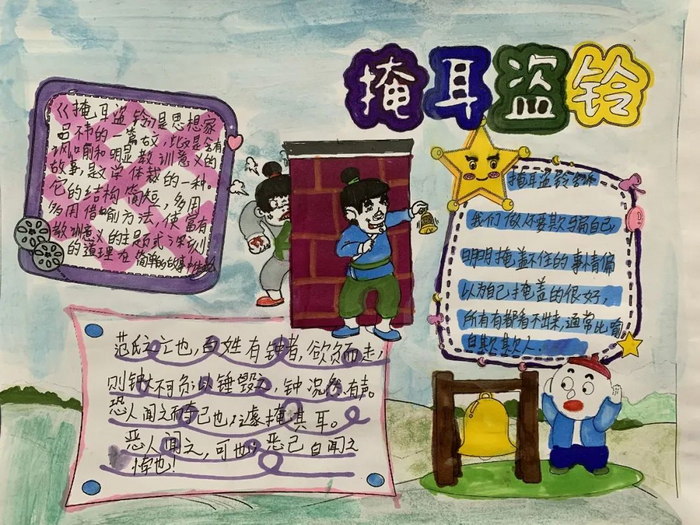 掩耳盗铃
《掩耳盗铃》是思想家
吕不韦的一篇散文,此文是含有
讽喻和明显教训意义的
故事,是文学体裁的一种。
它的结构简短,多用
多用借喻方法,使富有
教训意义的主题或深刻
的道理在简单的故事中体现
掩耳盗铃告诉
我们做人不要欺骗自己
明明掩盖不住的事情偏
以为自己掩盖的很好,
所有有都看不出来,通常比喻
自欺欺人.
范氏之亡也,百姓有钟者,欲负而走,
则钟大不可负;以锤毁之,钟况然有声。
恐人闻之而夺己也,遽掩其耳。
恶人闻之,可也;恶己自闻之
悖也!